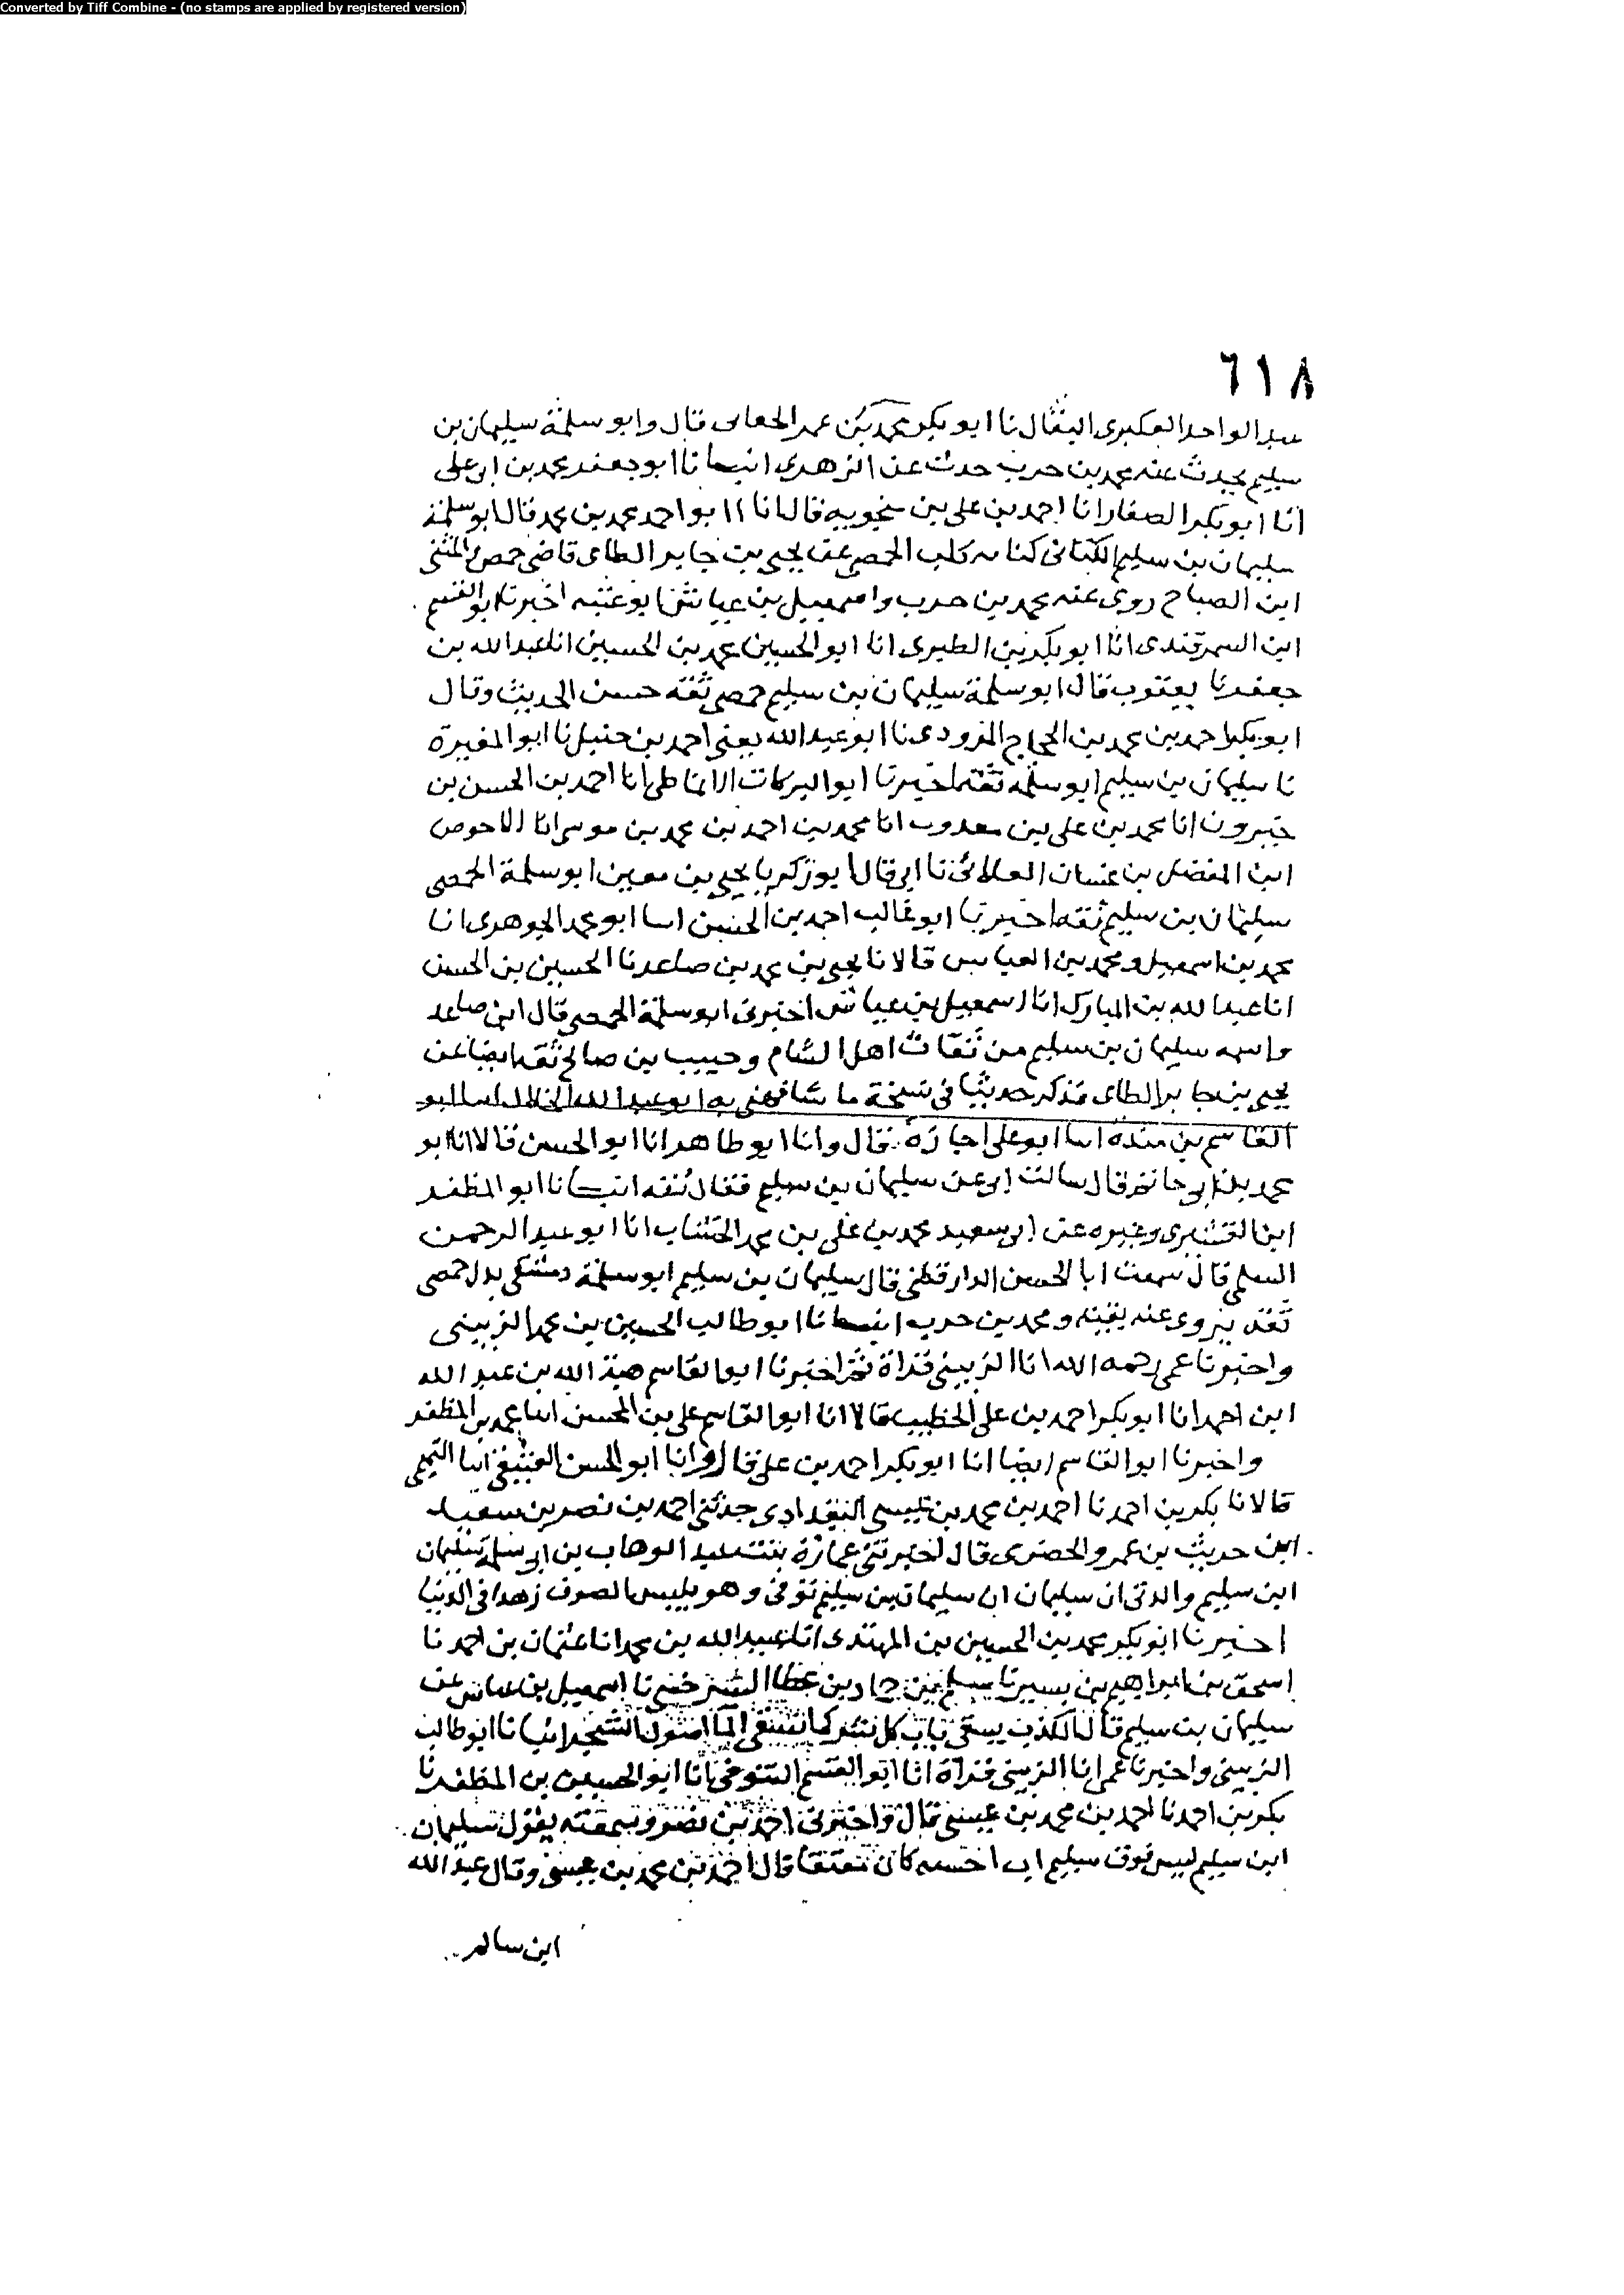 Converted by Tiff Combine - (no stamps are applied by registered version)
٦١٨
عبد الواحد العكبرى البقال نا ابو بكر محمد بن عمر الجعابى قال وابو سلمة سليمان بن
سليم يحدث عنه محمد بن حرب حدث عن الزهرى انبانا ابو جعفر محمد بن ابى على
انا ابو بكر الصفار انا احمد بن على بن منجويه قال انا ابو احمد محمد بن محمد قال ابو سلمة
سليمان بن سليم الكنانى كنانه كلب الحمصى عن يحيى بن جابر الطاى قاضى حمص والمثنى
ابن الصباح روى عنه محمد بن حرب واسمعيل بن عياش ابو عتبه اخبرنا ابو القسم
ابن السمرقندى انا ابو بكر بن الطبرى انا ابو الحسين محمد بن الحسين انا عبد الله بن
جعفر نا يعقوب قال ابو سلمة سليمان بن سليم حمصى ثقه حسن الحديث وقال
ابو بكر احمد بن محمد بن الحجاج المروذى نا ابو عبد الله يعنى احمد بن حنبل نا ابو المغيرة
نا سليمان بن سليم ابو سلمه ثقه اخبرنا ابو البركات الانماطى انا احمد بن الحسن بن
خيرون انا محمد بن على بن يعقوب انا محمد بن احمد بن محمد بن موسى انا الاحوص
ابن المفضل بن غسان الغلابى نا ابى قال ابو زكريا يحيى بن معين ابو سلمة الحمصى
سليمان بن سليم ثقه اخبرنا ابو غالب احمد بن الحسن انا ابو محمد الجوهرى انا
محمد بن اسمعيل ومحمد بن العباس قالا نا يحيى بن محمد بن صاعد نا الحسين بن الحسن
انا عبد الله بن المبارك انا اسمعيل بن عياش اخبرنى ابو سلمة الحمصى قال ابن صاعد
واسمه سليمان بن سليم من ثقات اهل الشام وحبيب بن صالح ثقه ايضا عن
يحيى بن جابر الطاى فذكر حديثا فى نسخة ما شافهنى به ابو عبد الله الخلال انا ابو
القاسم بن مندة انا ابو على اجازة قال وانا ابو طاهر انا ابو الحسن قالا انا ابو
محمد بن ابى حاتم قال سالت ابى عن سليمان بن سليم فقال ثقه انبانا ابو المظفر
ابن القشيرى وغيره عن ابى سعيد محمد بن على بن محمد الخشاب انا ابو عبد الرحمن
السلمى قال سمعت ابا الحسن الدارقطنى قال سليمان بن سليم ابو سلمة دمشقى بدل حمصى
ثقة يروى عنه بقية ومحمد بن حرب انبانا ابو طالب الحسين بن محمد الزينبى
واخبرنا عمى رحمه الله انا الزينبى قراة ثم اخبرنا ابو القاسم هبة الله بن عبد الله
ابن احمد انا ابو بكر احمد بن على الخطيب قالا انا ابو القاسم على بن المحسن انا محمد بن المظفر
واخبرنا ابو القاسم ايضا انا ابو بكر احمد بن على قال وانا ابو الحسن العتيقى انا التميمى
قالا نا بكر بن احمد نا احمد بن محمد بن عيسى البغدادى حدثنى احمد بن نصر بن سعيد
ابن حريث بن عمرو الحضرمى قال اخبرتنى عمارة بنت عبد الوهاب بن ابى سلمة سليمان
ابن سليم والدتى ان سليمان ان سليمان بن سليم توفى وهو يلبس الصوف زهدا فى الدنيا
اخبرنا ابو بكر محمد بن الحسين بن المهتدى انا عبيد الله بن محمد انا عثمان بن احمد نا
اسحق بن ابراهيم بن نا بن حماد بن نا اسمعيل بن عياش عن
سليمان بن سليم قال الكذب يسقى باب كل شر كما يسقى الما اصول الشجر انبانا ابو طالب
الزينبى واخبرنا عمى انا الزينبى قراة انا ابو القسم التنوخى انا ابو الحسين بن المظفر نا
بكر بن احمد نا احمد بن محمد بن عيسى قال واخبرنى احمد بن نصر وسمعته يقول سليمان
ابن سليم ليس فوق سليم اب احسبه كان قال احمد بن محمد بن عيسى وقال عبد الله
ابن سالم